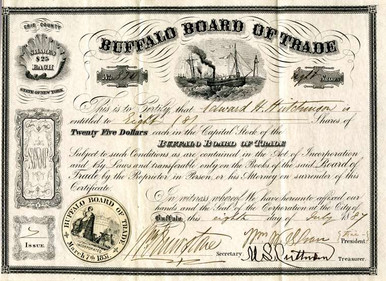 ERIE COUNTY
SHARES
$25
EACH
STATE OF NEW YORK
BUFFALO BOARD OF TRADE
Shares
This is to Certify that Edward H. Hutchinson is
entitled to Eight (8) Shares of
Twenty Five Dollars each in the Capital Stock of the
BUFFALO BOARD OF TRADE
Subject to such Conditions as are contained in the Act of Incorporation
and By Laws and transferable only on the Books of the said Board of
Trade by the Proprietor in Person or his Attorney on surrender of this
Certificate.
In witness whereof We have hereunto affixed our
hands and the Seal of the Corporation at the City of
Buffalo this eighth day of July 1887
BUFFALO BOARD OF TRADE
March 7th 1857
ISSUE
Wm
President
Secretary
Treasurer